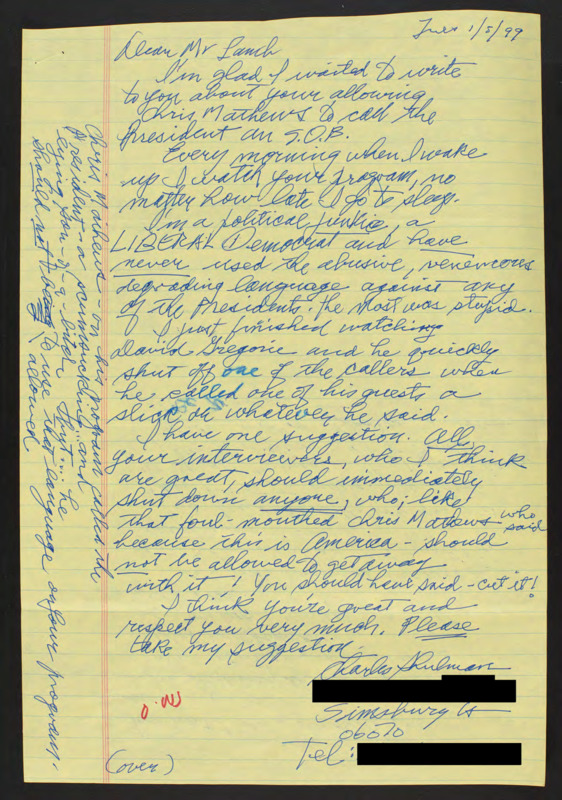 Tues 1/5/99
Dear Mr Lamb
I'm glad I waited to write
to you about your allowing
Chris Mathews to call the
President an S.O.B.
Every morning when I wake
up I watch your program, no
matter how late I go to sleep.
I'm a political junkie, a
LIBERAL Democrat and have
never used the abusive, venemous
degrading language against any
of the Presidents. The most was stupid.
I just finished watching
David Gregorie and he quickly
shut off one of the callers when
he called one of his guests a
slick or whatever he said.
I have one suggestion. All
your interviewers, who I think
are great, should immediately
shut down anyone, who, like
that foul-mouthed Chris Mathews who said
because this is America - should
not be allowed to get away
with it! You should have said - cut it!
I think you're great and
respect you very much. Please
take my suggestion.
Charles Shulman
Simsbury Ct
06070
Tel:
(over)
Chris Mathews - on his program called the
President - a scumsucking and
lying son-of-a-bitch. But... he
should not be allowed to use that language on your program.